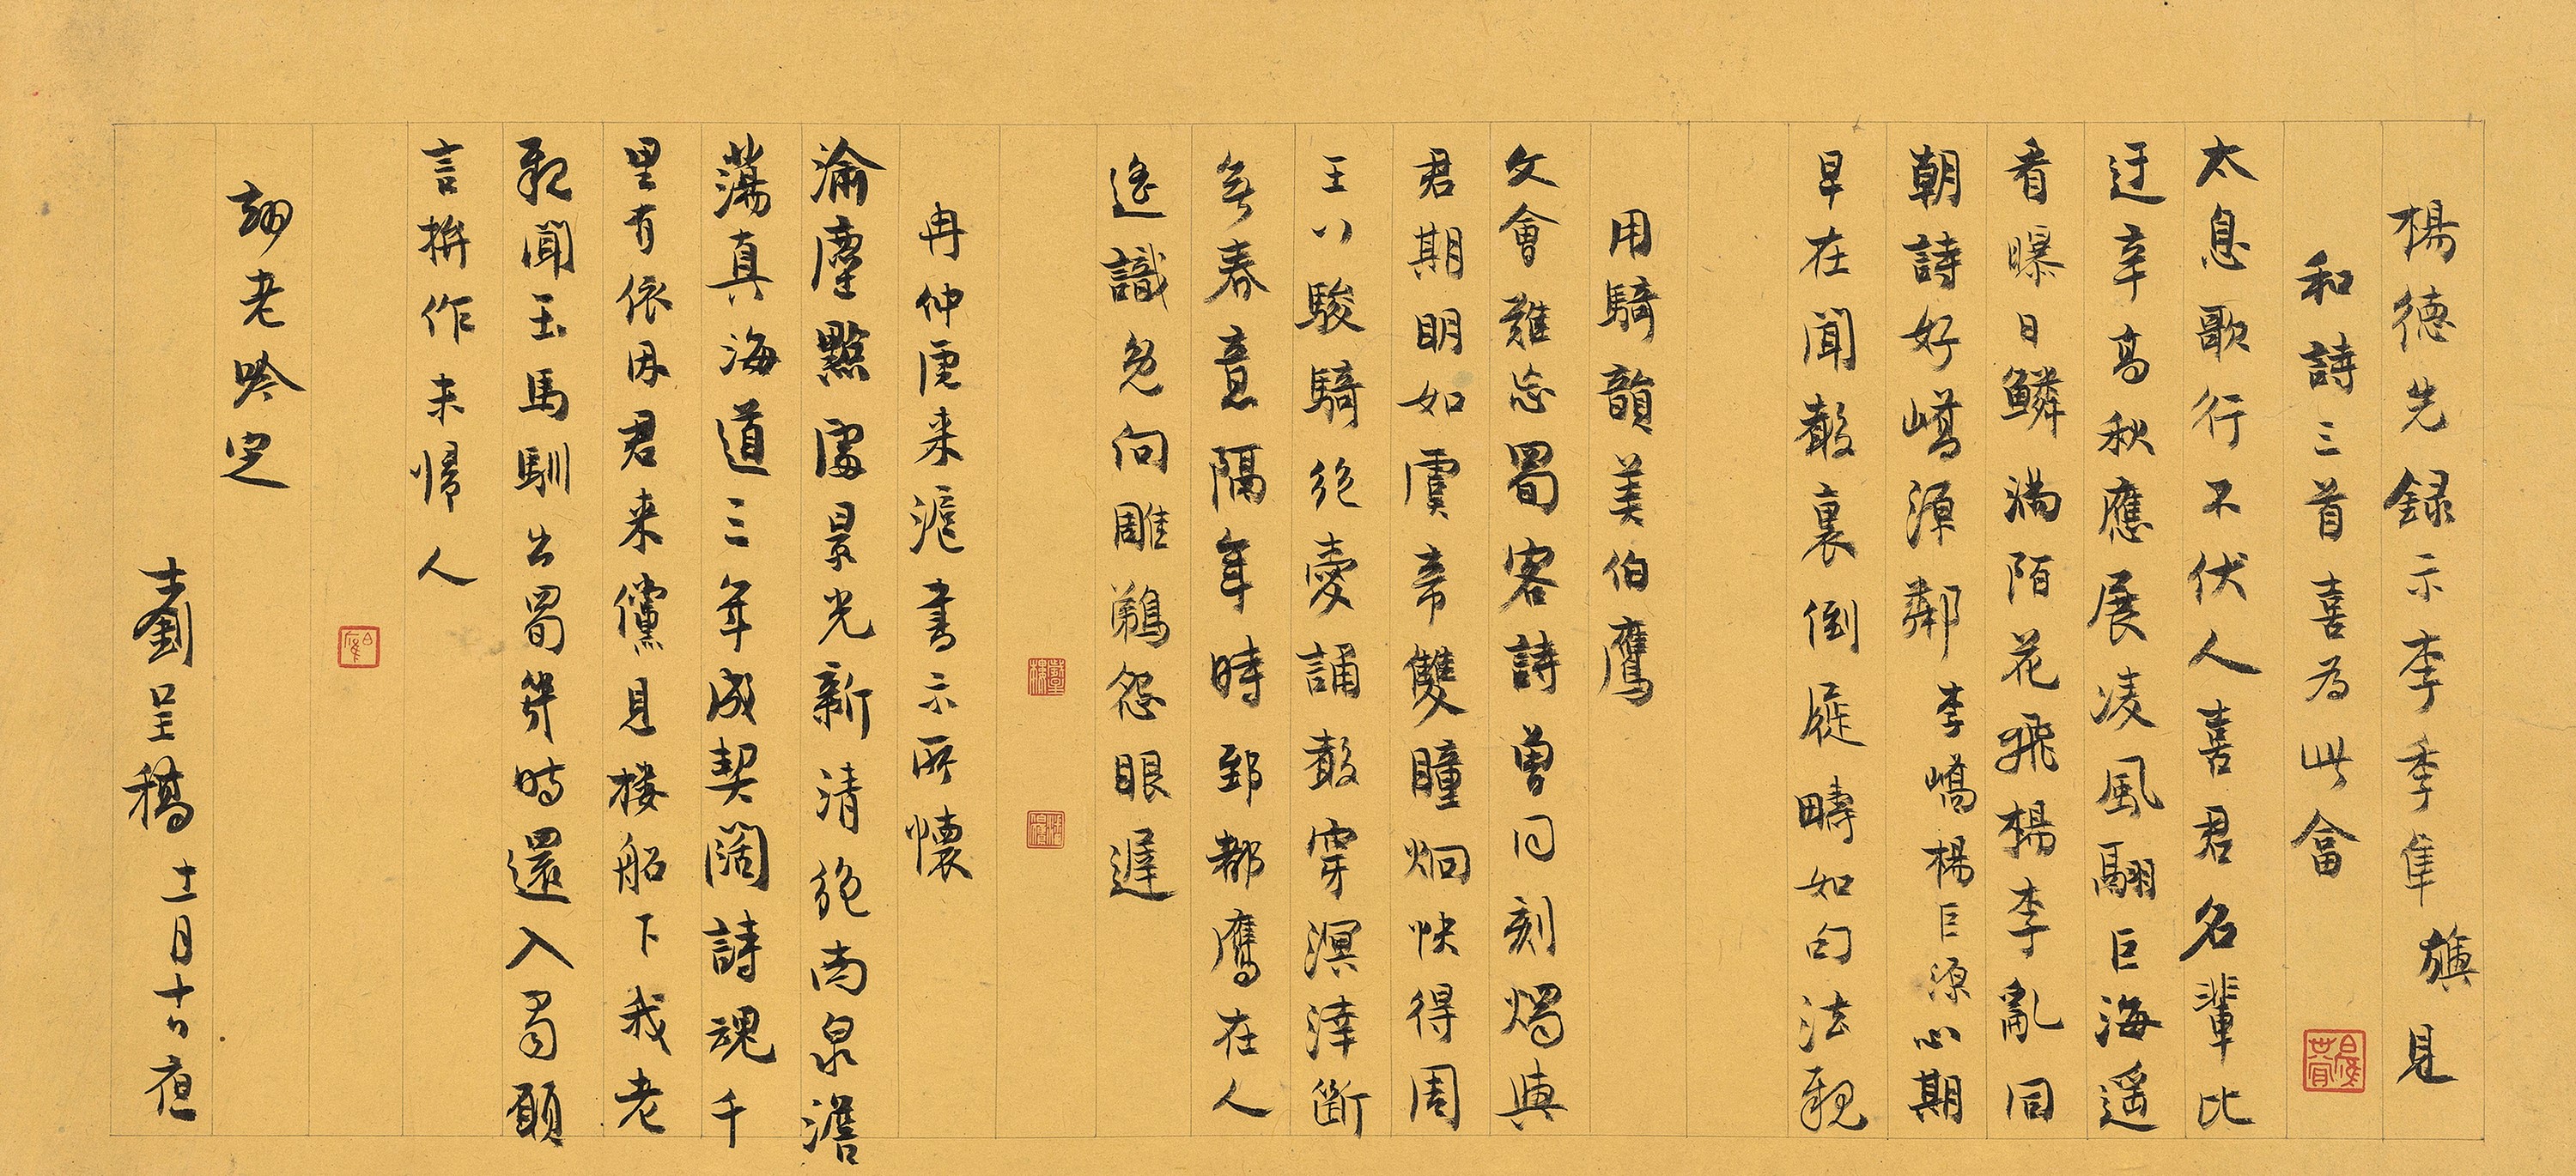 楊德先錄示李季隼旟見
和詩三首喜為此會
太息歌行不伏人喜君名輩比
迂辛高秋應展凌風翮巨海遥
看曝日鱗滿陌花飛楊李亂同
朝詩好嶠源鄰李嶠楊巨源心期
早在聞敲裏倒屣疇如句法親
用騎韻美伯鷹
文會難忘蜀客詩曾同刻燭與
君期明如虞帝雙瞳炯快得周
王八駿騎絕愛誦敲穿溟涬斷
無春意隔年時郅都鷹在人
遙識免向雕鵜怨眼遲
冉仲虎來滬書示所懷
瀹塵點處景光新清絕南泉澹
蕩真海道三年成契闊詩魂千
里有依因君來儻見樓船下我老
親聞玉馬馴出蜀幾時還入蜀願
言拚作未歸人
翊老吟定
士劉呈稿十一月十六夜